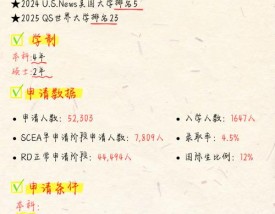 ★2024 U.S.News美国大学排名5
★2025 QS世界大学排名23
学制
本科:4年
硕士:2年
申请数据
• 申请人数: 52,303
• 入学人数: 1647人
• SCEA早申请阶段申请人数: 7,809人
• 录取率: 4.5%
• RD正常申请阶段: 44,494人
• 国际生比例: 12%
申请条件
本科: